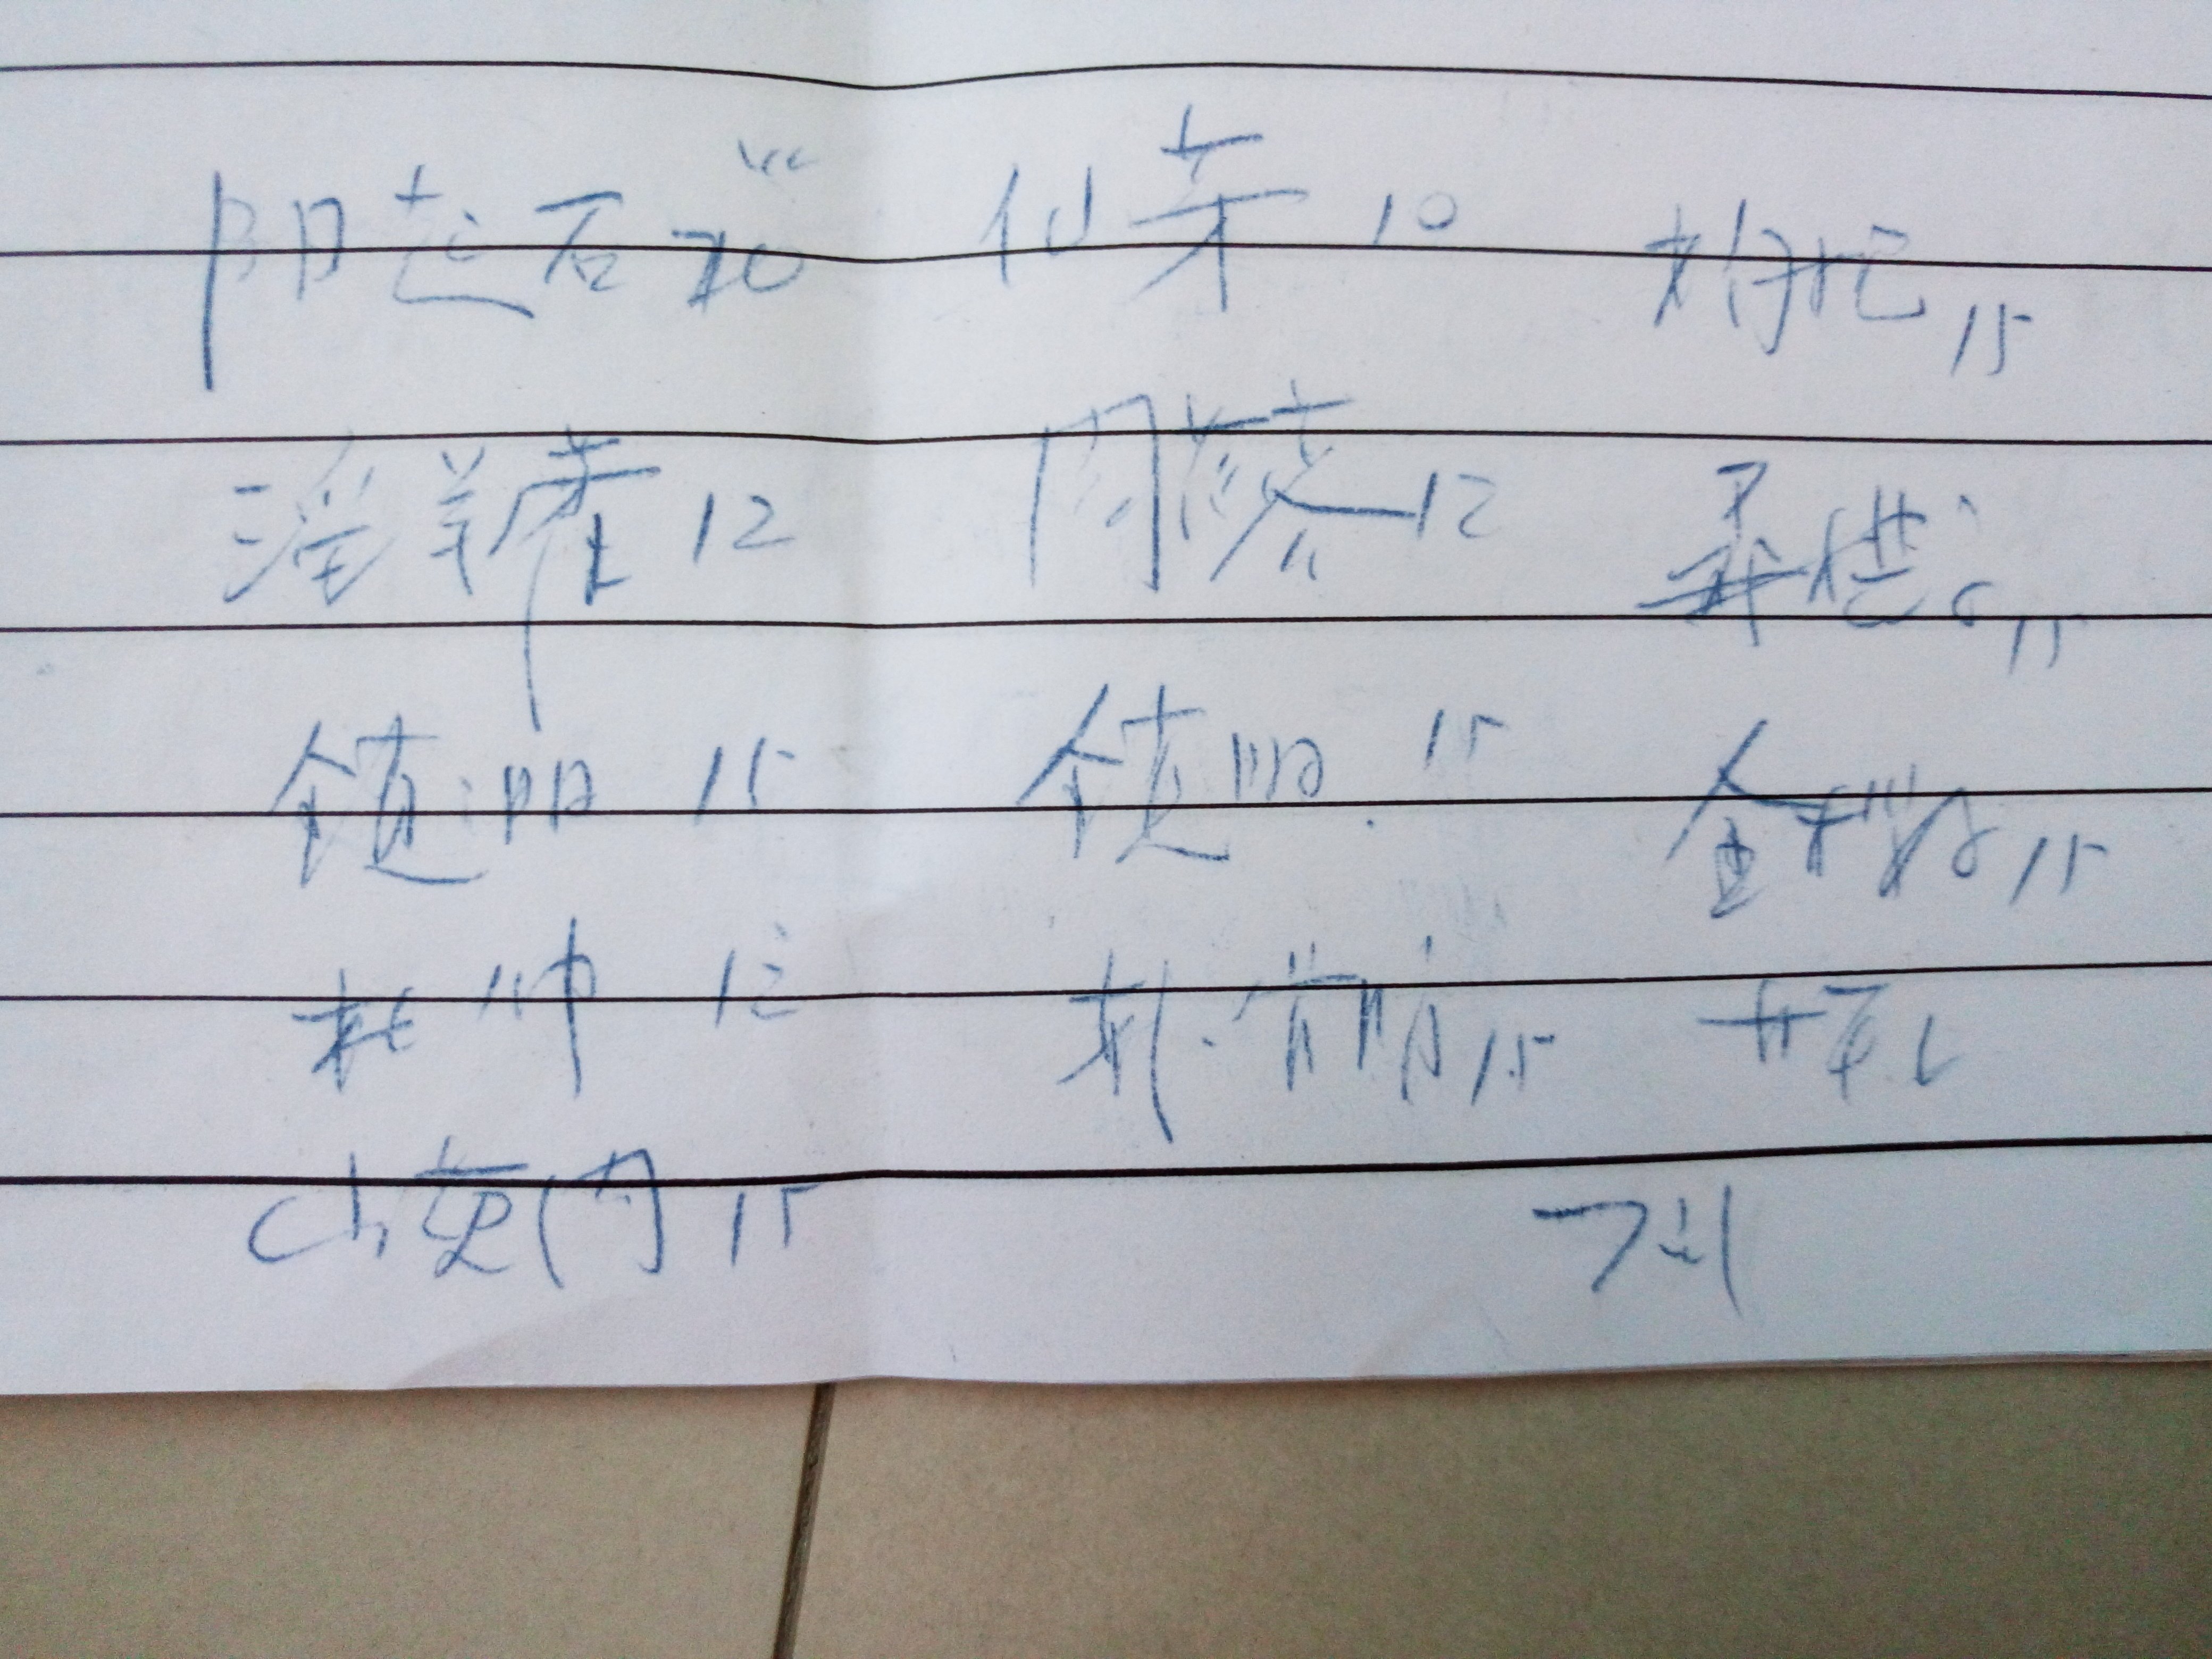 阳起石20 仙茅10 枸杞15
淫羊藿12 肉苁蓉12 桑椹子15
锁阳15 锁阳15 金樱子15
杜仲12 补骨脂15
山萸肉15 7剂